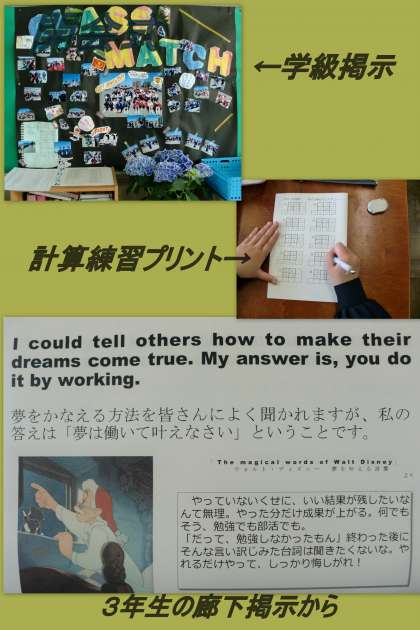 CLASS
MATCH
←学級掲示
計算練習プリント→
I could tell others how to make their
dreams come true. My answer is, you do
it by working.
夢をかなえる方法を皆さんによく聞かれますが、私の
答えは「夢は働いて叶えなさい」ということです。
「The magical words of Walt Disney」
ウォルト・ディズニー 夢を叶える言葉
より
やっていないくせに、いい結果が残したいな
んて無理。やった分だけ成果が上がる。何でも
そう、勉強でも部活でも。
「だって、勉強しなかったもん」終わった後に
そんな言い訳じみた台詞は聞きたくないな。や
れるだけやって、しっかり悔しがれ！
３年生の廊下掲示から